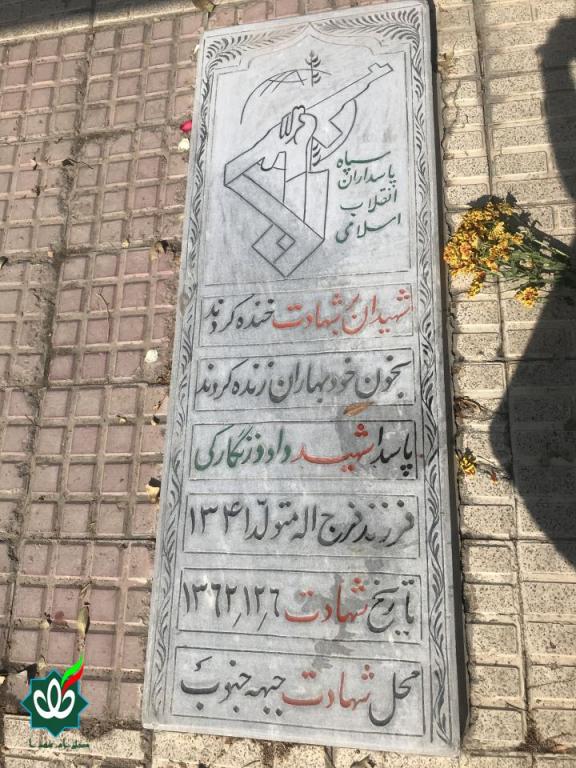 سپاه
پاسداران
انقلاب
اسلامی
شهیدان بر شهادت خنده کردند
بخون خود بهاران زنده کردند
پاسدار شهید داود زنگارکی
فرزند فرج اله متولد ۱۳۴۱
تاریخ شهادت ۱۳۶۲٫۱۲٫۶
محل شهادت جبهه جنوب